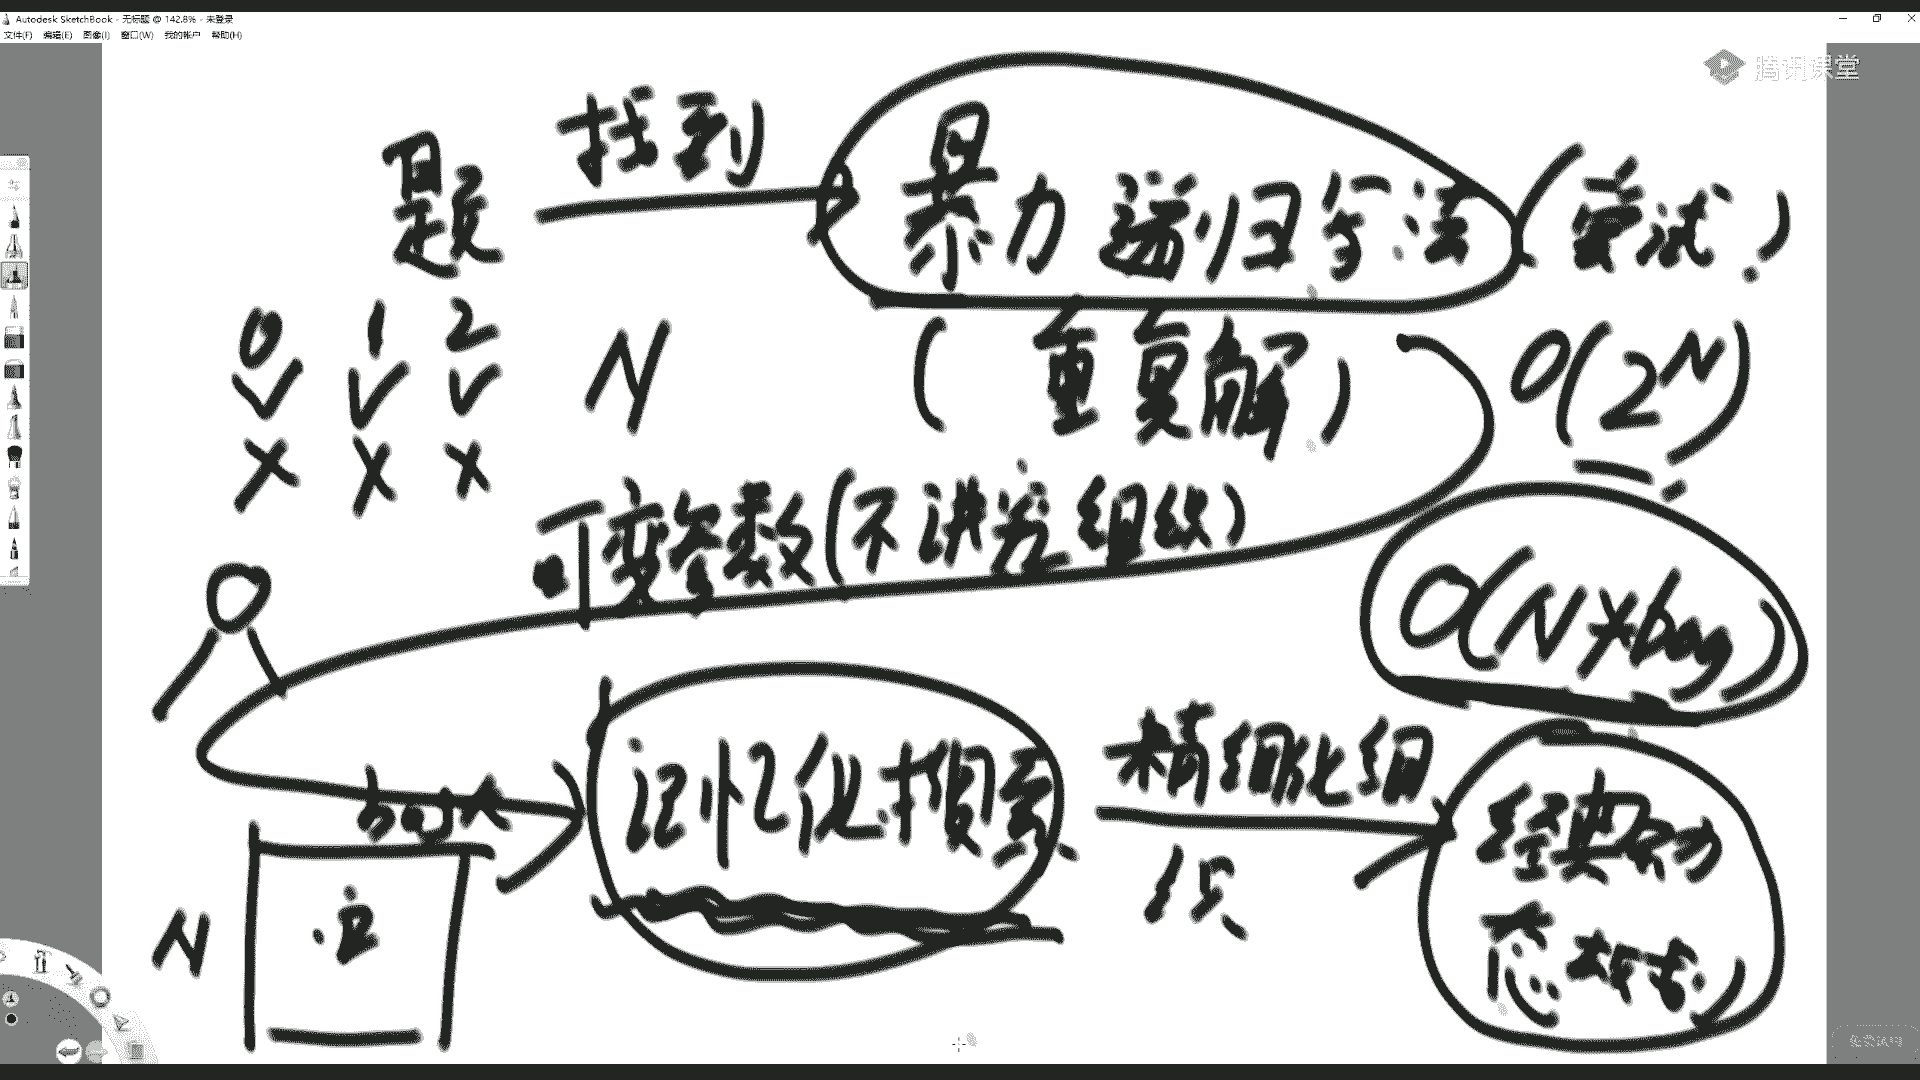 Autodesk SketchBook - 无标题 @ 142.8% - 未登录
文件(F) 编辑(E) 图像(I) 窗口(W) 我的帐户 帮助(H)
腾讯课堂
题 找到 暴力递归方法 (尝试)
0 1 2 N (重复解) O(2^N)
可变参数(不讲究组织)
O(N*bag)
bag大
记忆化搜索
精细化组织
经典动态规划
N